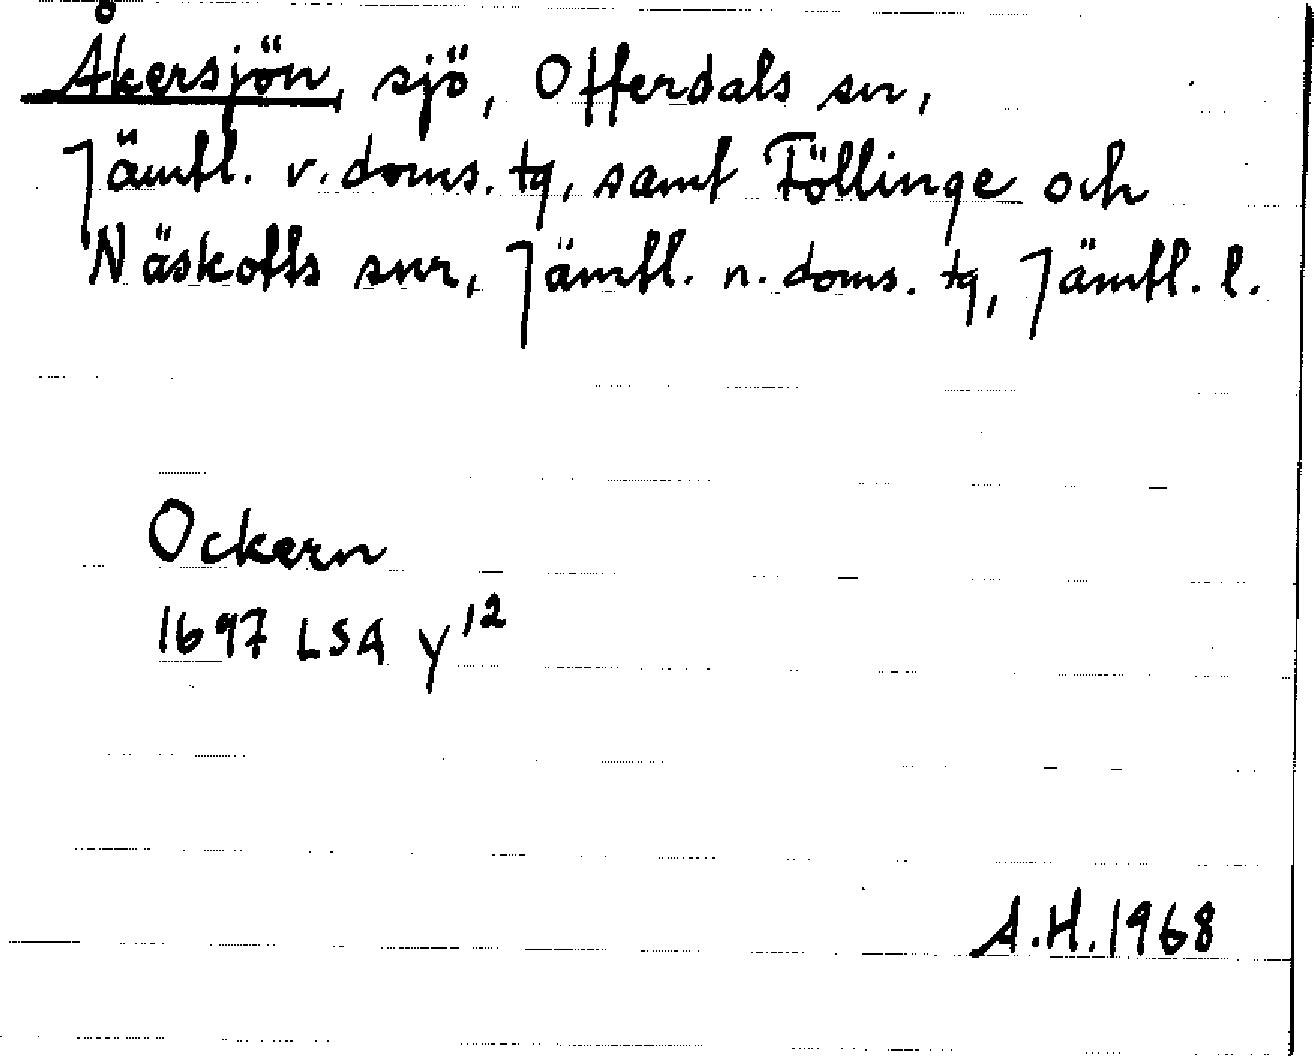 Åkersjön, sjö, Offerdals sn,
Jämtl. v. doms. tg, samt Föllinge och
Näskotts snr, Jämtl. n. doms. tg, Jämtl. l.
Ockern
1697 LSA Y¹²
A.H. 1968